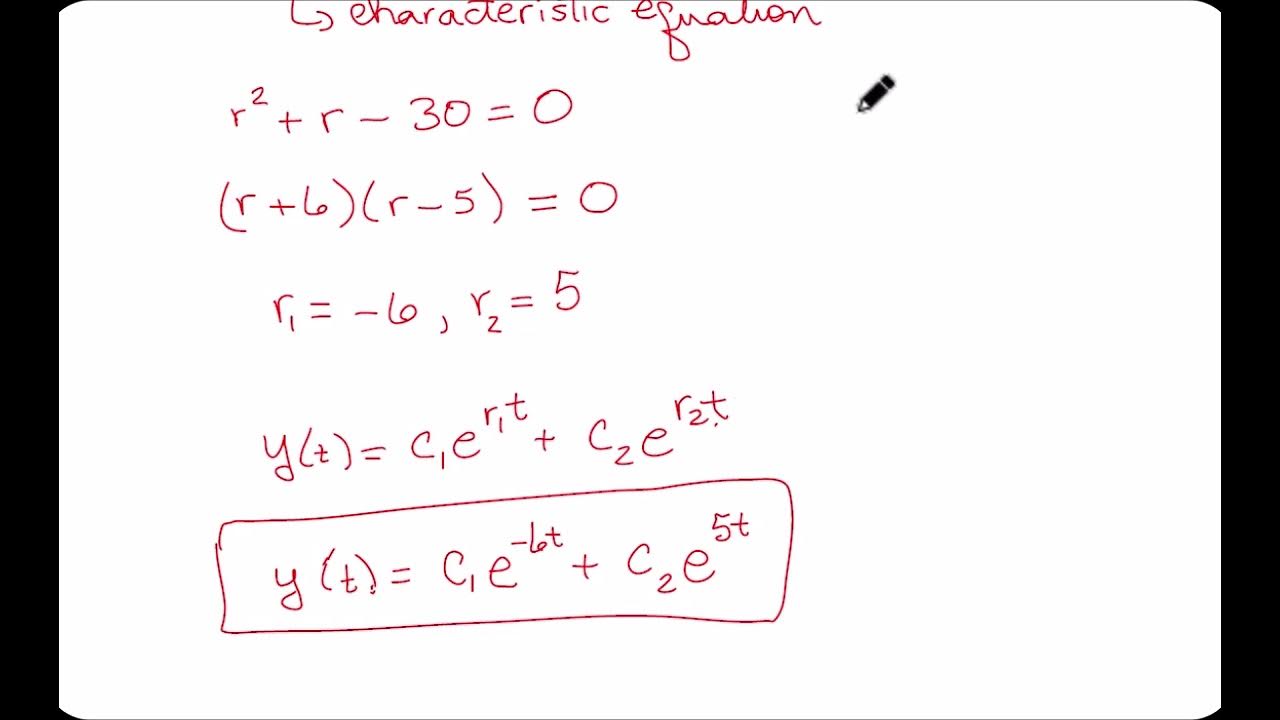 ↳ characteristic equation
r² + r − 30 = 0
(r + 6)(r − 5) = 0
r₁ = −6, r₂ = 5
y(t) = c₁e^{r₁t} + c₂e^{r₂t}
y(t) = c₁e^{−6t} + c₂e^{5t}